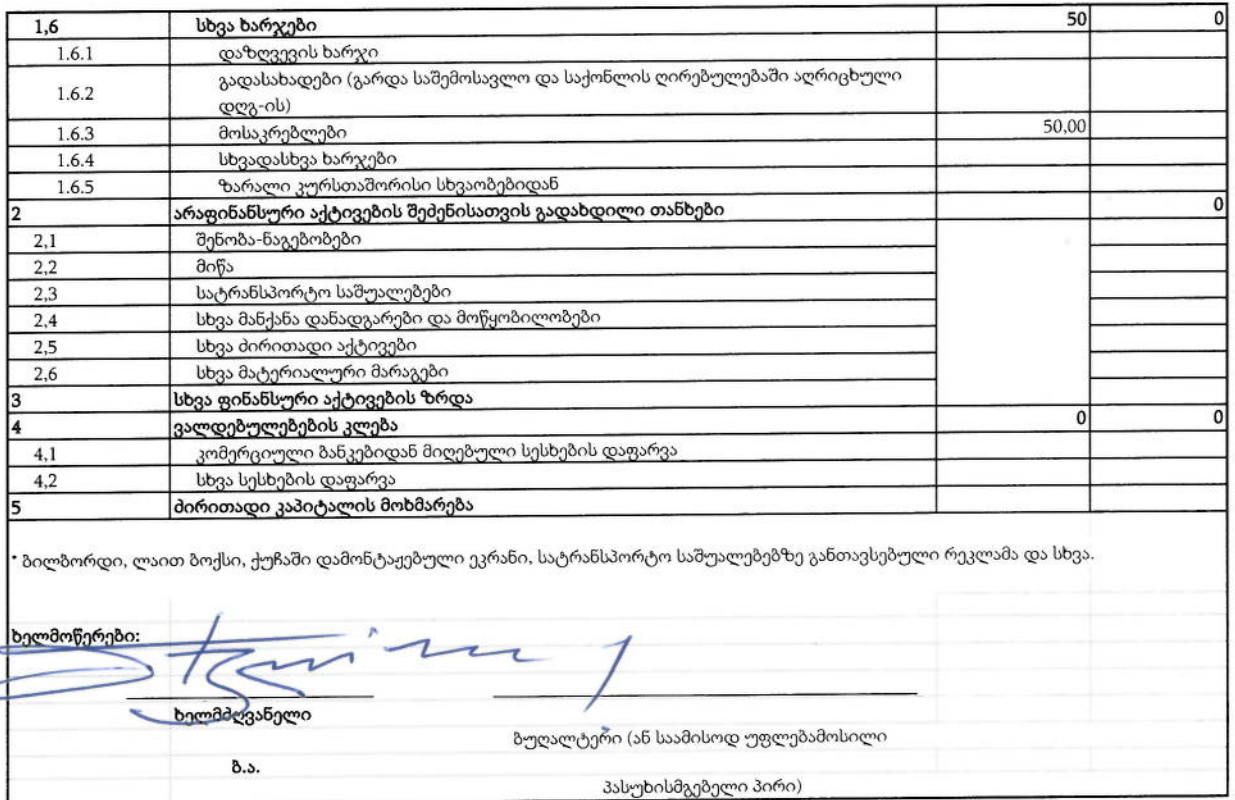 1,6 სხვა ხარჯები 50 0
1.6.1 დაზღვევის ხარჯი
1.6.2 გადასახადები (გარდა საშემოსავლო და საქონლის ღირებულებაში აღრიცხული
დღგ-ის)
1.6.3 მოსაკრებლები 50,00
1.6.4 სხვადასხვა ხარჯები
1.6.5 ზარალი კურსთაშორისი სხვაობებიდან
2 არაფინანსური აქტივების შეძენისათვის გადახდილი თანხები 0
2,1 შენობა-ნაგებობები
2,2 მიწა
2,3 სატრანსპორტო საშუალებები
2,4 სხვა მანქანა დანადგარები და მოწყობილობები
2,5 სხვა ძირითადი აქტივები
2,6 სხვა მატერიალური მარაგები
3 სხვა ფინანსური აქტივების ზრდა
4 ვალდებულებების კლება 0 0
4,1 კომერციული ბანკებიდან მიღებული სესხების დაფარვა
4,2 სხვა სესხების დაფარვა
5 ძირითადი კაპიტალის მოხმარება
* ბილბორდი, ლაით ბოქსი, ქუჩაში დამონტაჟებული ეკრანი, სატრანსპორტო საშუალებებზე განთავსებული რეკლამა და სხვა.
ხელმოწერები:
ხელმძღვანელი
ბუღალტერი (ან საამისოდ უფლებამოსილი
ბ.ა.
პასუხისმგებელი პირი)